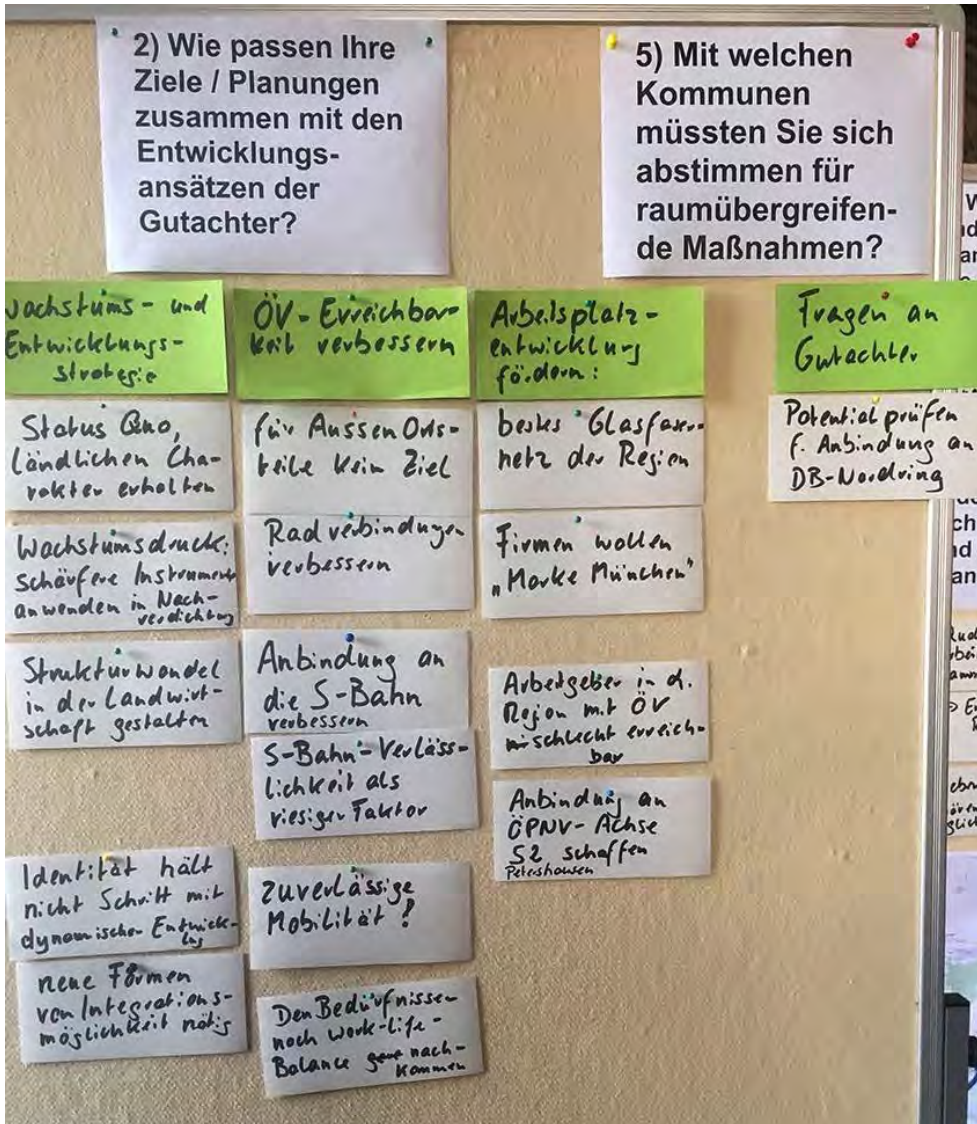 2) Wie passen Ihre
Ziele / Planungen
zusammen mit den
Entwicklungs-
ansätzen der
Gutachter?
5) Mit welchen
Kommunen
müssten Sie sich
abstimmen für
raumübergreifen-
de Maßnahmen?
Wachstums- und
Entwicklungs-
strategie
Status Quo,
ländlichen Cha-
rakter erhalten
Wachstumsdruck:
schärfere Instrumente
anwenden in Nach-
verdichtung
Strukturwandel
in der Landwirt-
schaft gestalten
Identität hält
nicht Schritt mit
dynamischer Entwick-
lung
neue Formen
von Integrations-
möglichkeit nötig
ÖV-Erreichbar-
keit verbessern
für Aussen Orts-
teile kein Ziel
Radverbindungen
verbessern
Anbindung an
die S-Bahn
verbessern
S-Bahn-Verläss-
lichkeit als
riesiger Faktor
zuverlässige
Mobilität!
Den Bedürfnissen
nach Work-Life-
Balance nach-
kommen
Arbeitsplatz-
entwicklung
fördern:
bestes Glasfaser-
netz der Region
Firmen wollen
„Marke München"
Arbeitgeber in d.
Region mit ÖV
schlecht erreich-
bar
Anbindung an
ÖPNV-Achse
S2 schaffen
Petershausen
Fragen an
Gutachter
Potential prüfen
f. Anbindung an
DB-Nordring